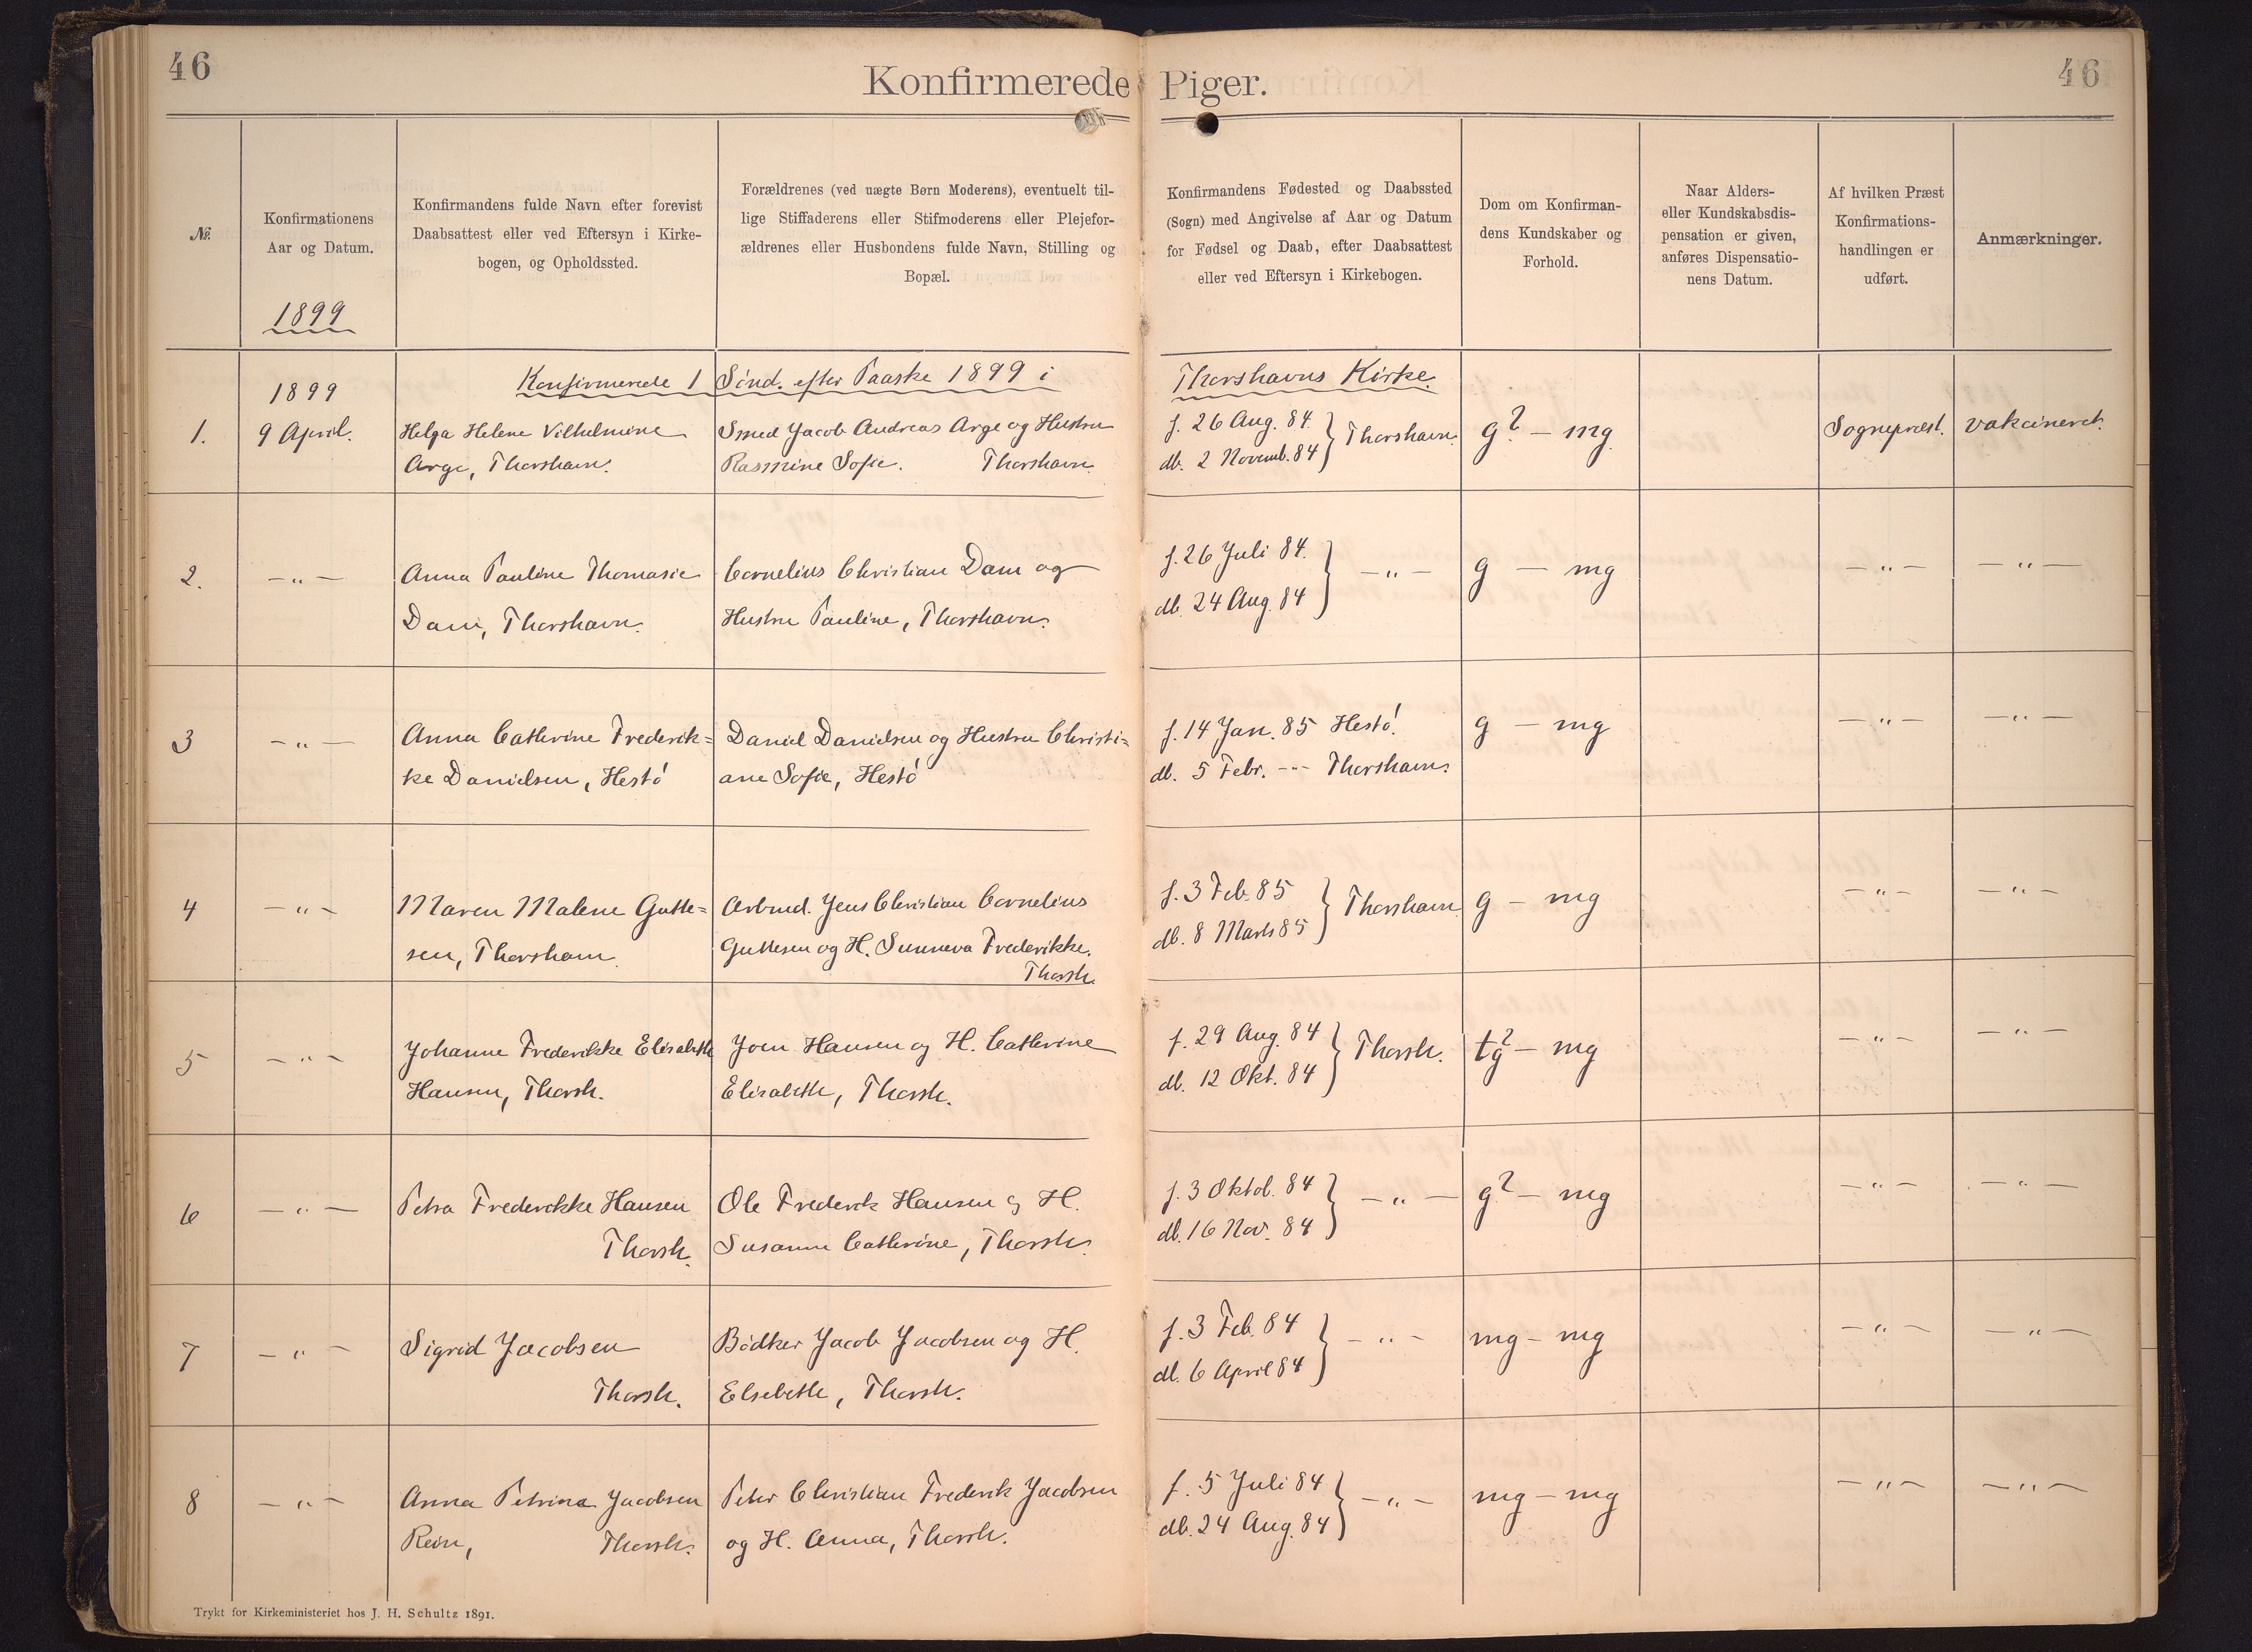 46
Konfirmerede Piger.
46
№.
Konfirmationens
Aar og Datum.
1899
Konfirmandens fulde Navn efter forevist
Daabsattest eller ved Eftersyn i Kirke-
bogen, og Opholdssted.
Forældrenes (ved uægte Børn Moderens), eventuelt til-
lige Stiffaderens eller Stifmoderens eller Plejefor-
ældrenes eller Husbondens fulde Navn, Stilling og
Bopæl.
Konfirmandens Fødested og Daabssted
(Sogn) med Angivelse af Aar og Datum
for Fødsel og Daab, efter Daabsattest
eller ved Eftersyn i Kirkebogen.
Dom om Konfirman-
dens Kundskaber og
Forhold.
Naar Alders-
eller Kundskabsdis-
pensation er given,
anføres Dispensatio-
nens Datum.
Af hvilken Præst
Konfirmations-
handlingen er
udført.
Anmærkninger.
Konfirmerede 1 Sönd. efter Paaske 1899 i Thorshavns Kirke.
1.
1899
9 April.
Helga Helene Vilhelmine
Arge, Thorshavn.
Smed Jacob Andreas Arge og Hustru
Rasmine Sofie. Thorshavn.
f. 26 Aug. 84.
db. 2 Novemb. 84
} Thorshavn.
g? – mg.
Sognepræst.
vakcineret.
2.
– „ –
Anna Pauline Thomasie
Dam, Thorshavn.
Cornelius Christian Dam og
Hustru Pauline, Thorshavn.
f. 26 Juli 84.
db. 24 Aug. 84
} – „ –
g – mg
– „ –
– „ –
3
– „ –
Anna Cathrine Frederik=
ke Danielsen, Hestö
Daniel Danielsen og Hustru Christi=
ane Sofie, Hestö
f. 14 Jan. 85 Hestö.
db. 5 Febr. -"- Thorshavn.
g – mg
– „ –
– „ –
4
– „ –
Maren Malene Gutte=
sen, Thorshavn.
Arbmd. Jens Christian Cornelius
Guttesen og H. Sunneva Frederikke.
Thorsh.
f. 3 Feb. 85
db. 8 Marts 85
} Thorshavn
g – mg
– „ –
– „ –
5
– „ –
Johanne Frederikke Elisabeth
Hansen, Thorsh.
Joen Hansen og H. Cathrine
Elisabeth, Thorsh.
f. 29 Aug. 84
db. 12 Okt. 84
} Thorsh.
tg? – mg
– „ –
– „ –
6
– „ –
Petra Frederikke Hansen
Thorsh.
Ole Frederik Hansen og H.
Susanne Cathrine, Thorsh.
f. 3 Oktob. 84
db. 16 Nov. 84
} – „ –
g? – mg
– „ –
– „ –
7
– „ –
Sigrid Jacobsen
Thorsh.
Bödker Jacob Jacobsen og H.
Elsebeth, Thorsh.
f. 3 Feb. 84
db. 6 April 84
} – „ –
mg – mg
– „ –
– „ –
8
– „ –
Anna Petrina Jacobsen
Rein, Thorsh.
Peter Christian Frederik Jacobsen
og H. Anna, Thorsh.
f. 5 Juli 84
db. 24 Aug. 84
} – „ –
mg – mg
– „ –
– „ –
Trykt for Kirkeministeriet hos J. H. Schultz 1891.